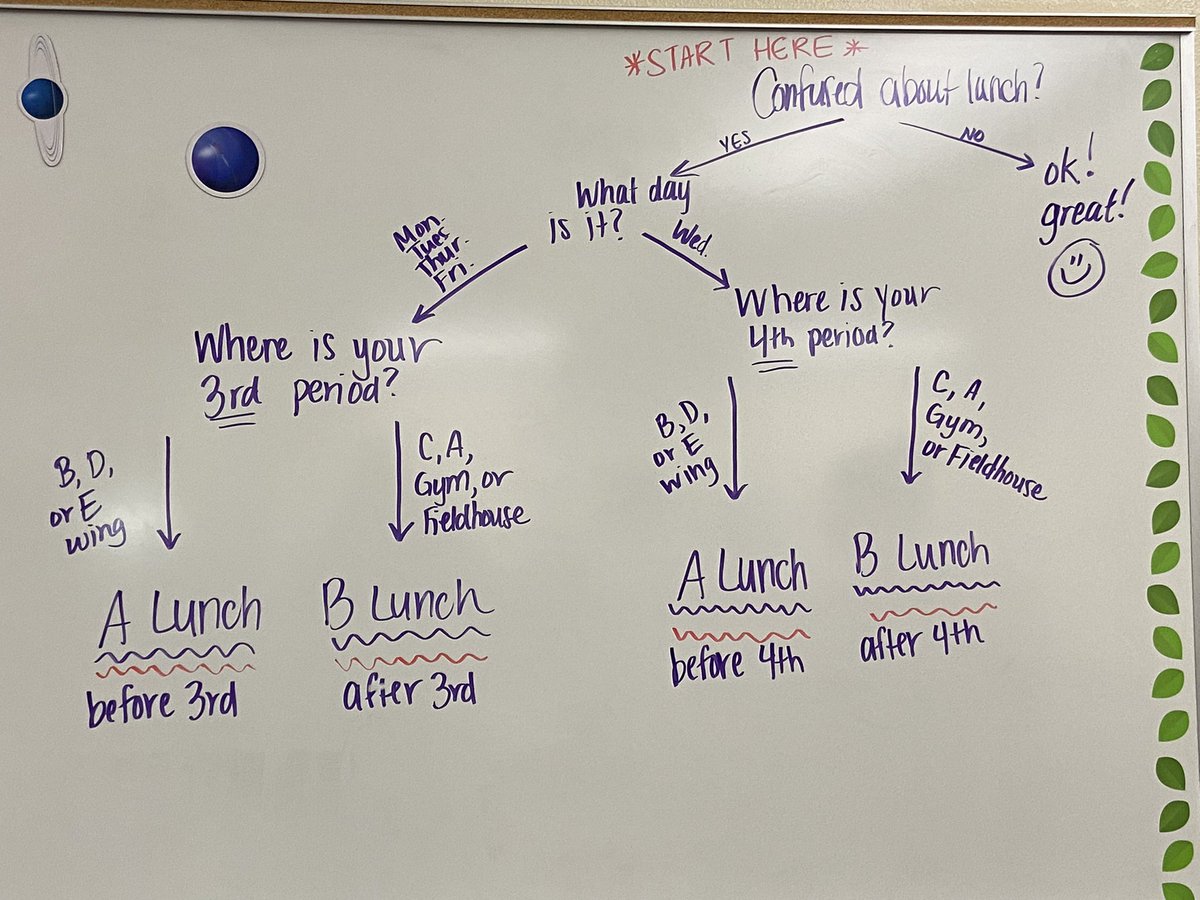 *START HERE*
Confused about lunch?
YES
NO
ok!
great!
What day
is it?
Mon.
Tues
Thur.
Fri.
Wed.
Where is your
3rd period?
Where is your
4th period?
B, D,
or E
wing
C, A,
Gym, or
Fieldhouse
B, D,
or E
wing
C, A,
Gym,
or Fieldhouse
A Lunch
before 3rd
B Lunch
after 3rd
A Lunch
before 4th
B Lunch
after 4th